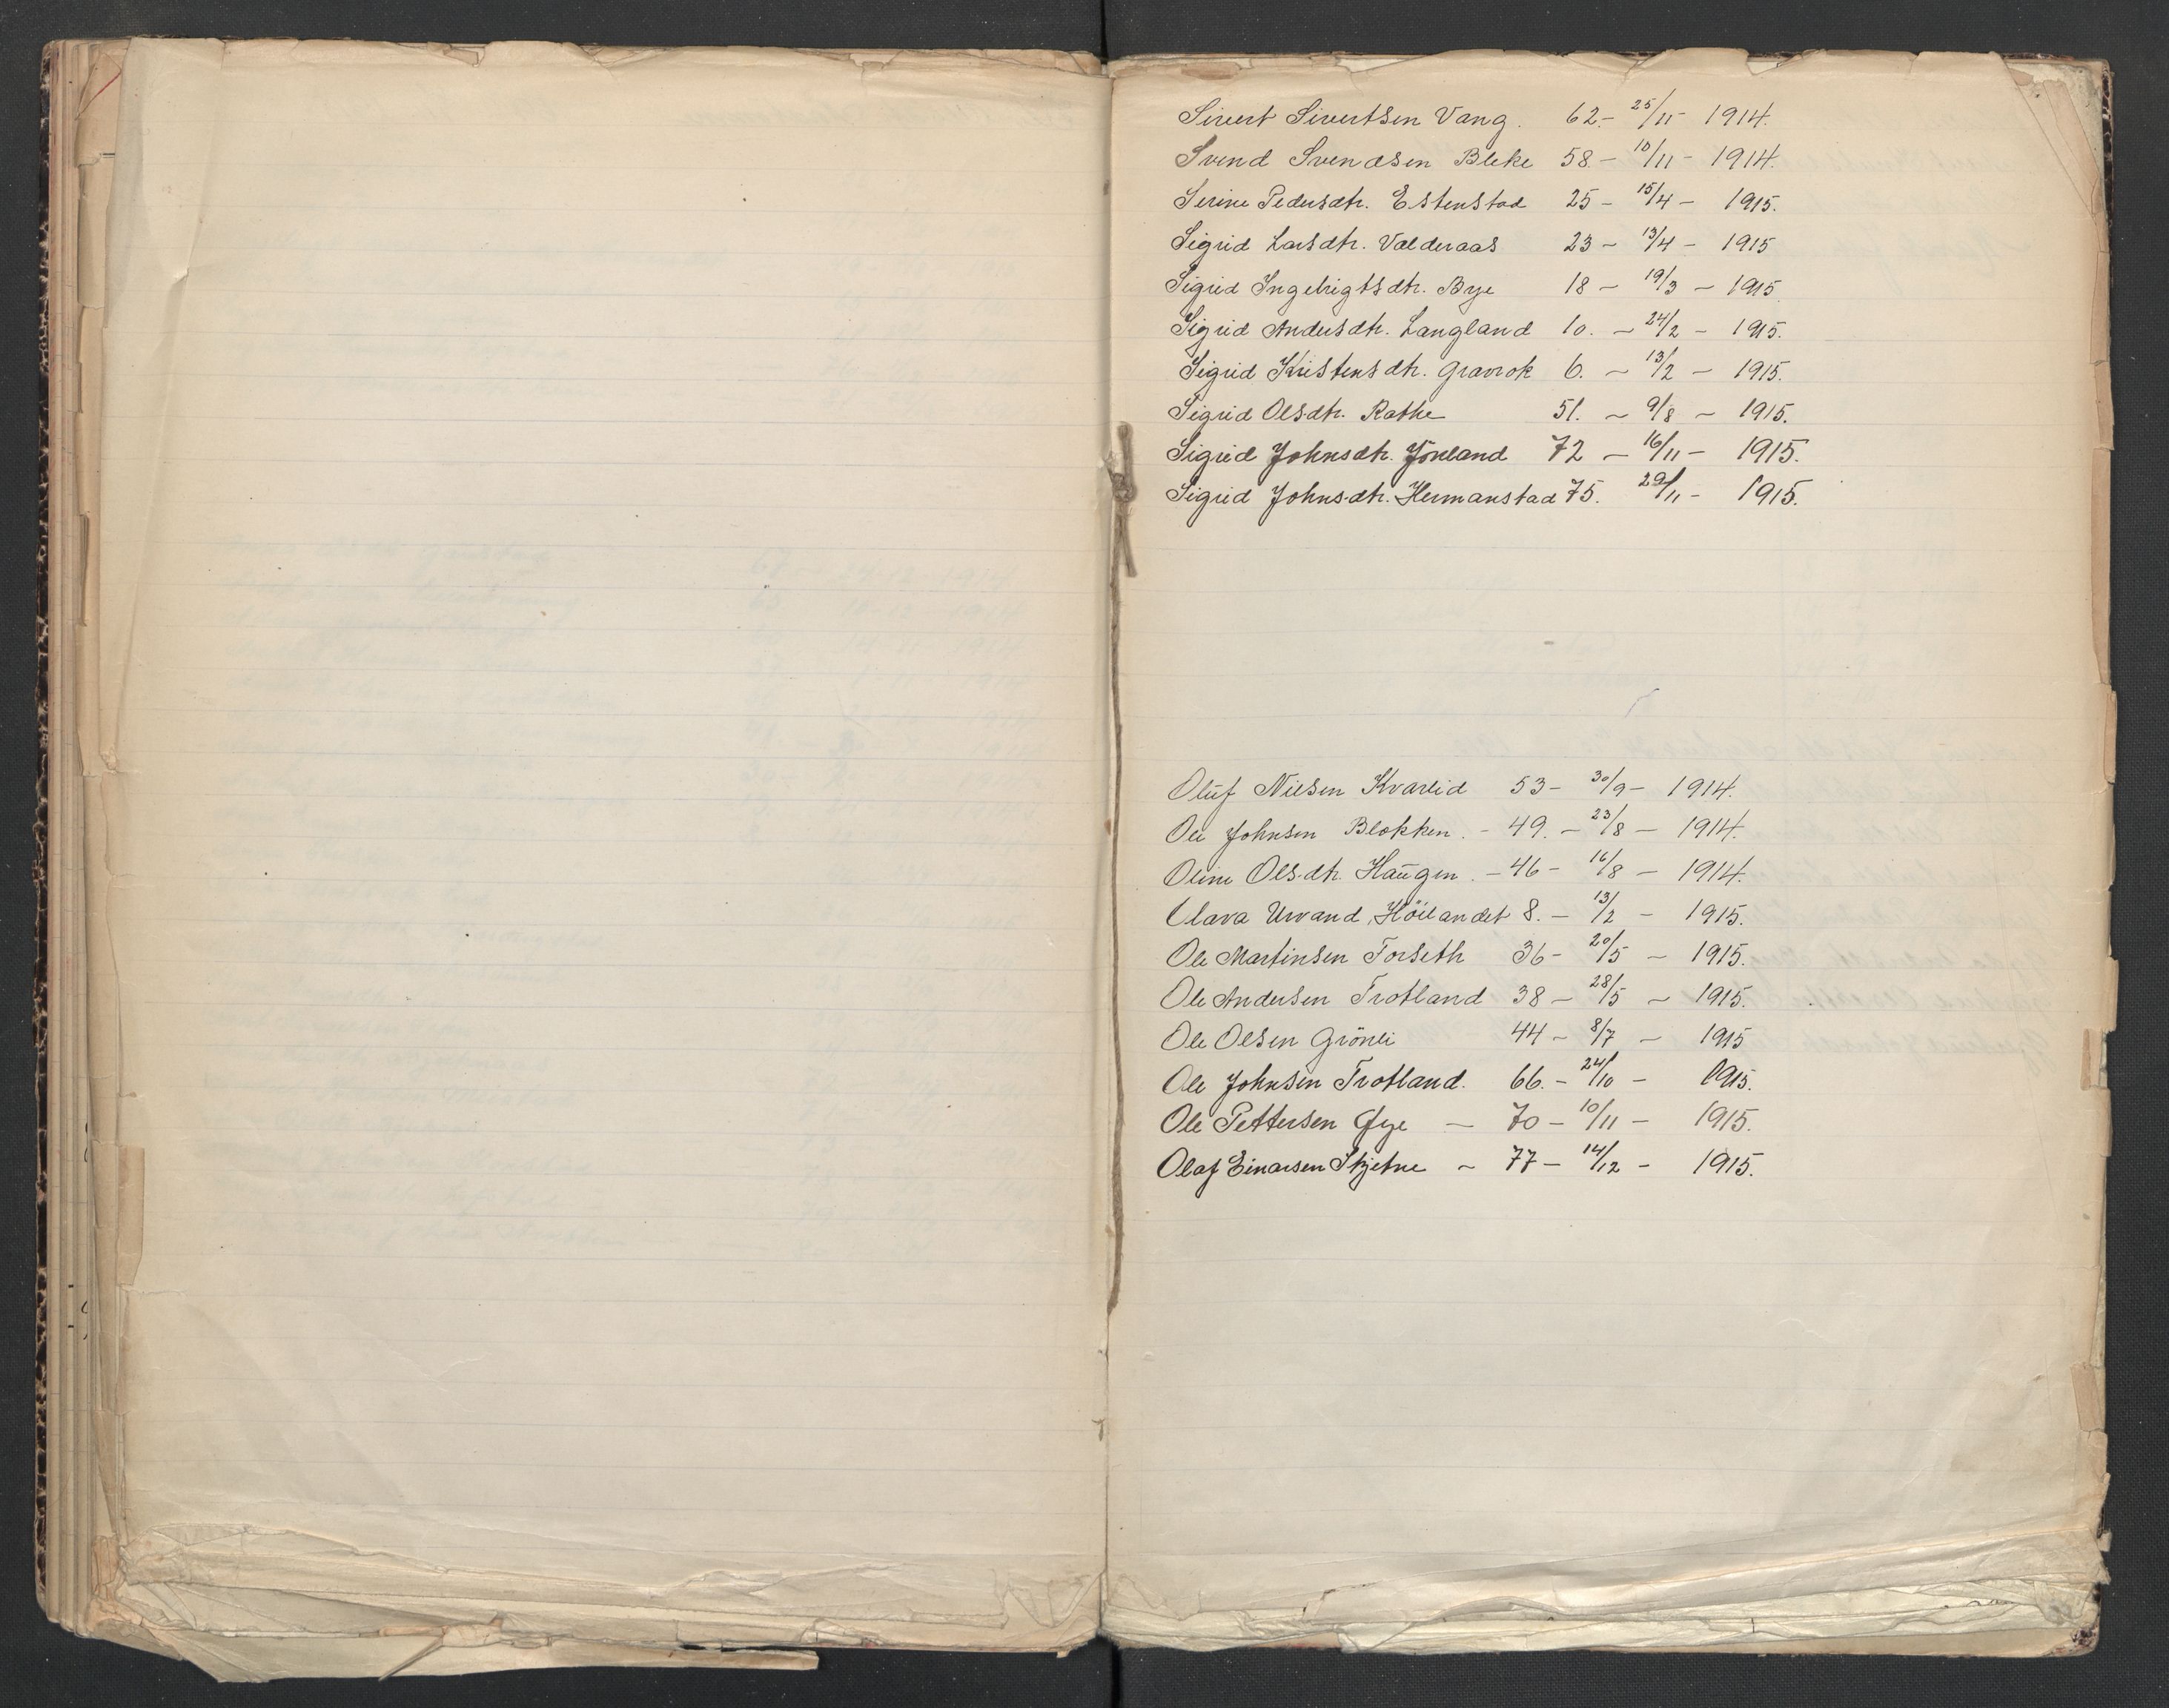 Sivert Sivertsen Vang. 62.- 25/11 - 1914.
Svend Svendsen Bleke 58 - 10/11 - 1914.
Serine Pedersdtr. Estenstad 25 - 15/4 - 1915.
Sigrid Larsdtr. Valderaas 23 - 13/4 - 1915
Sigrid Ingebrigtsdtr. Bye 18 - 19/3 - 1915
Sigrid Andersdtr. Langland 10. - 24/2 - 1915.
Sigrid Kristensdtr. Gravrok 6. - 13/2 - 1915.
Sigrid Olsdtr. Rathe 51. - 9/8 - 1915.
Sigrid Johnsdtr. 72 - 16/11 - 1915.
Sigrid Johnsdtr. Hermanstad 75. 29/11 - 1915.
Oluf Nilsen Kvarlid 53 - 30/9 - 1914.
Ole Johnsen Blokken. - 49. - 23/8 - 1914.
Oline Olsdtr. Haugen. - 46 - 16/8 - 1914.
Olava Urvand, Höilandet 8. - 13/2 - 1915.
Ole Martinsen Forseth 36 - 20/5 - 1915.
Ole Andersen Trotland 38 - 28/5 - 1915.
Ole Olsen Grönli 44 - 8/7 - 1915
Ole Johnsen Trotland. 66. - 24/10 - 1915.
Ole Pettersen Øye - 70 - 10/11 - 1915.
Olaf Einarsen Skjetne - 77 - 14/12 - 1915.